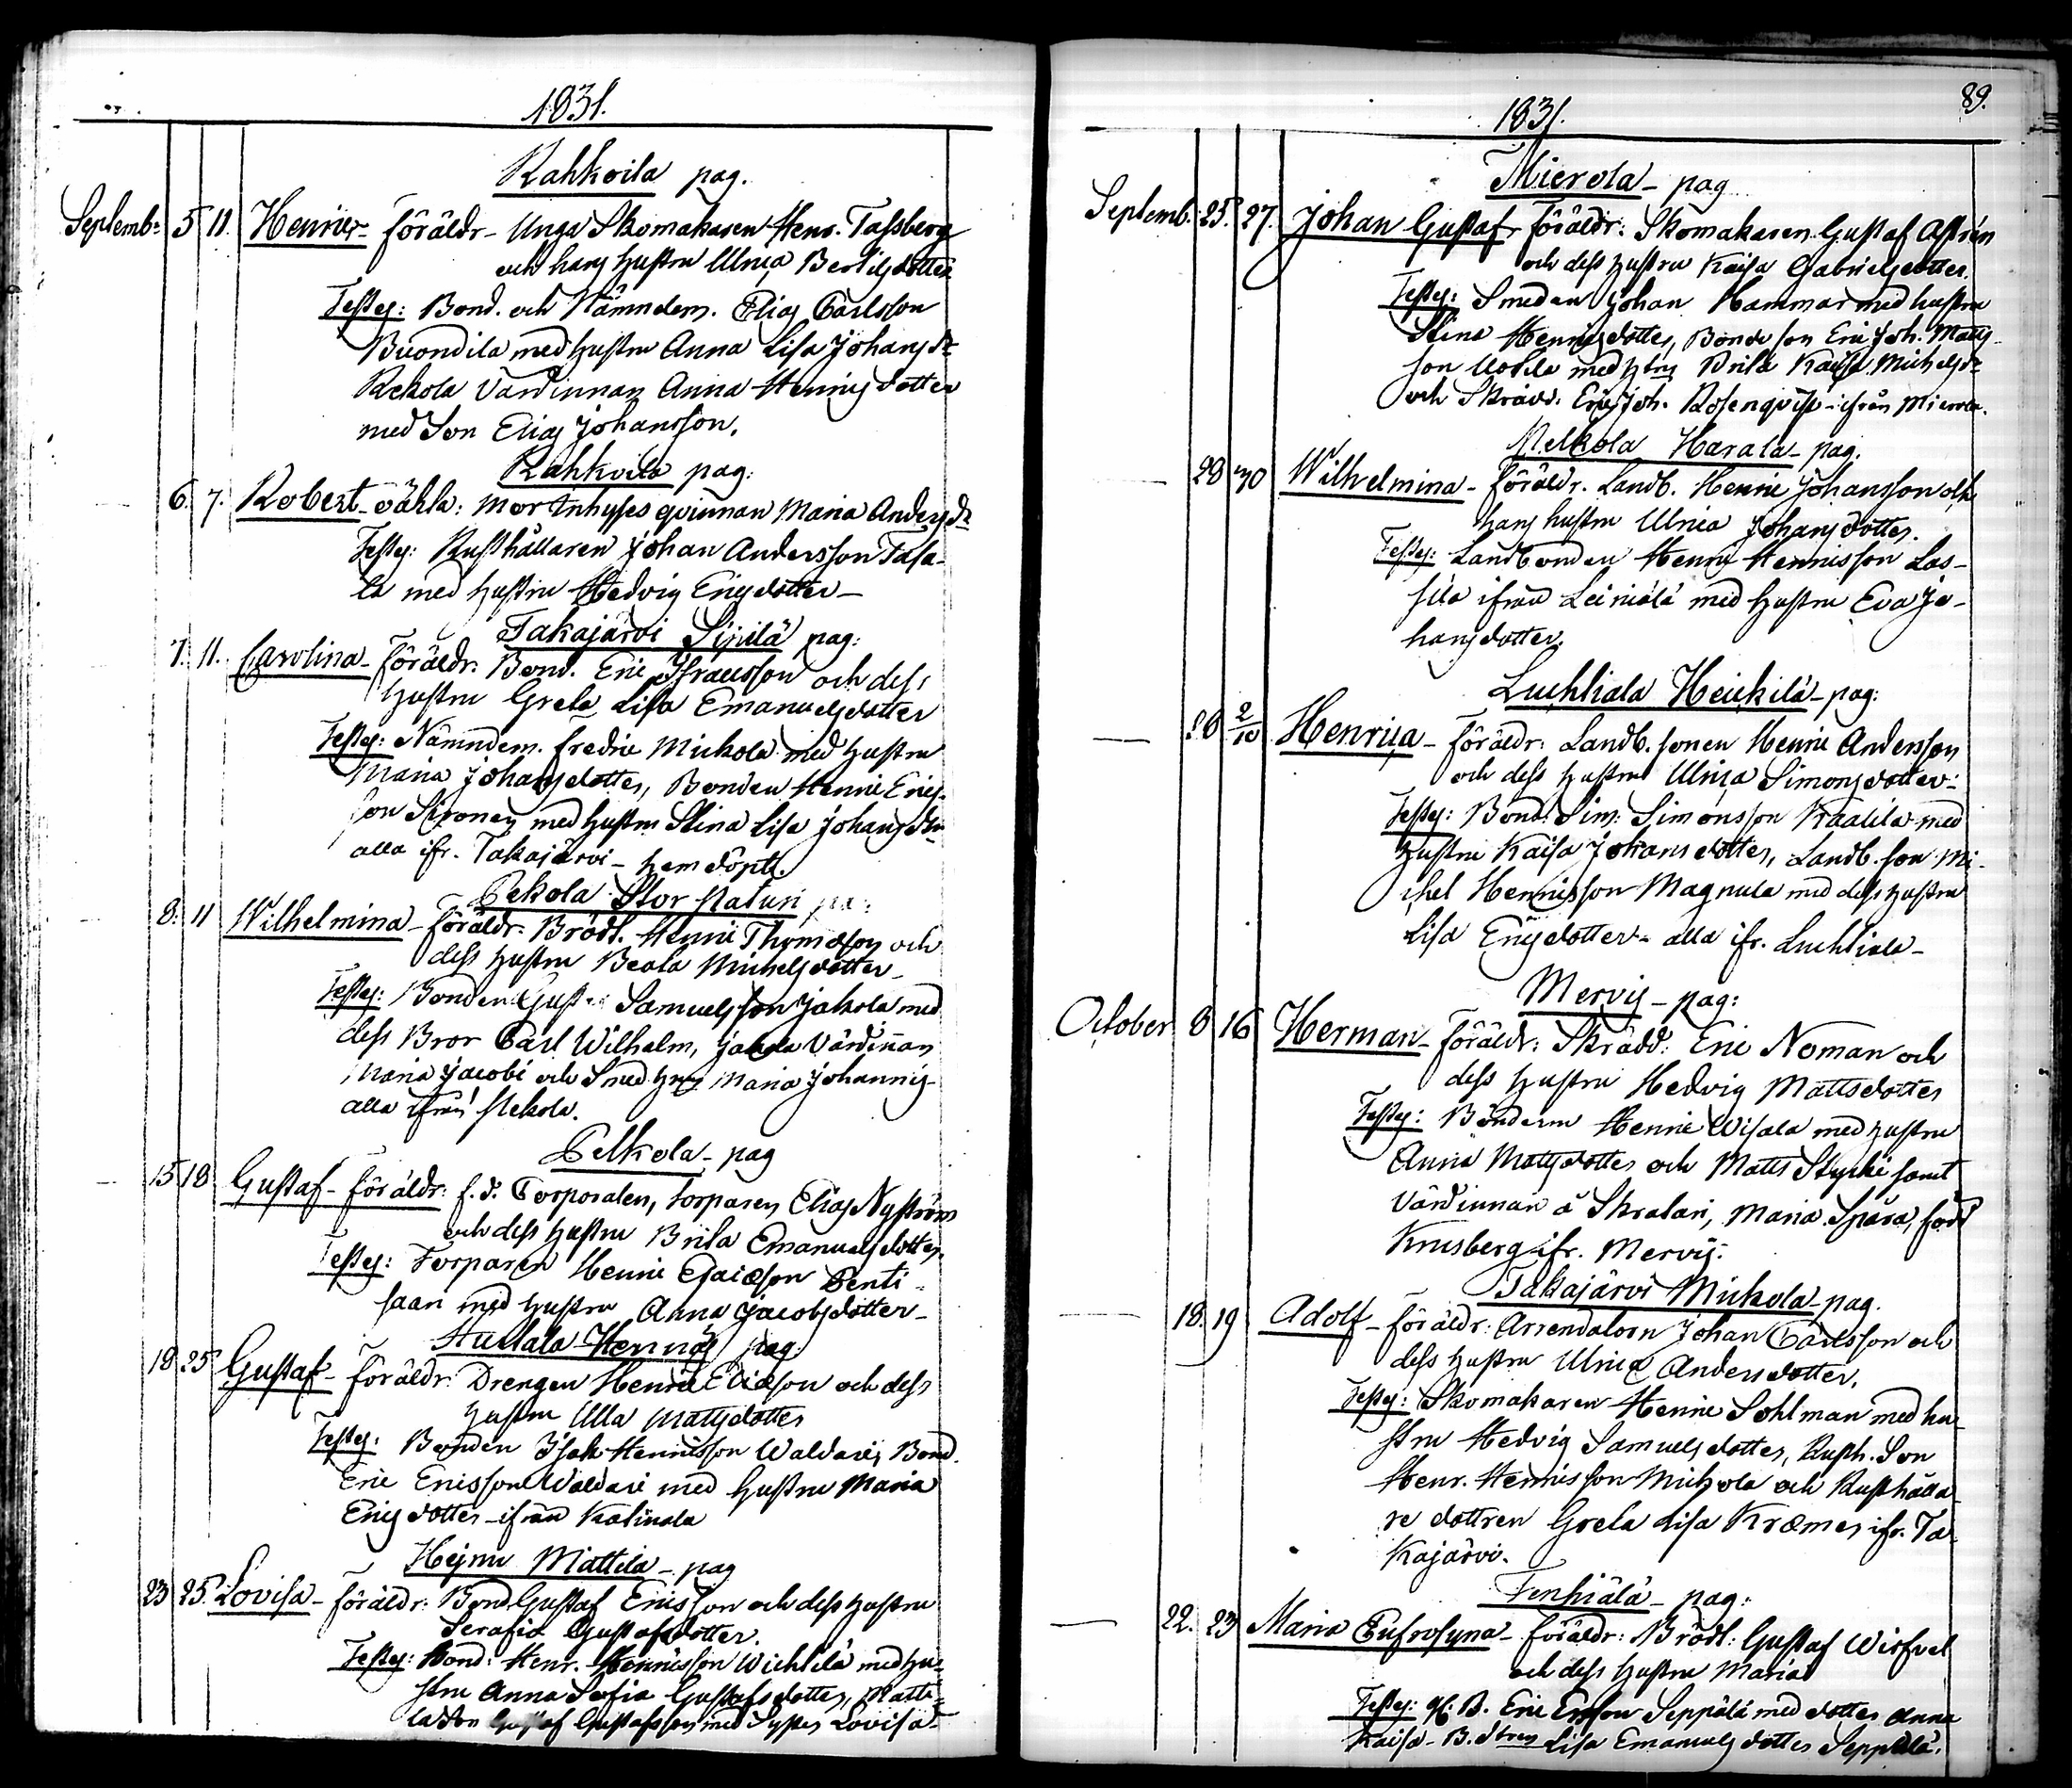 1831.
Rahkoila pag.
Septemb. 5 11. Henric- föräldr- Unga Skomakaren Henr. Tassberg
och hans hustru Ulrica Bertilsdotter
Testes: Bond. och Nämndem. Elias Carlsson
med hustru Anna Lisa Johansdr
Rekola Värdinnan Anna Henricsdotter
med Son Elias Johansson.
Rahkoila pag:
6. 7. Robert- oäkta: Mor Inhyses qvinnan Maria Andersdr
Testes: Rusthållaren Johan Andersson Tasa-
la med hustru Hedvig Ericsdotter-
Takajärvi Sipilä pag:
7. 11. Carolina- föräldr: Bond. Eric Israelsson och dess
hustru Greta Lisa Emanuelsdotter
Testes: Nämndem. Fredric Mickola med hustru
Maria Johansdotter, Bonden Henric Erics-
son Sipponen med hustru Stina Lisa Johansdtr
alla ifr. Takajärvi- hemdöptt.
Pekola Stor Naturi pa:
8. 11 Wilhelmina- föräldr. Brödl. Henric Thomasson och
dess hustru Beata Michelsdotter-
Testes: Bonden Gust Samuelsson Jakola med
dess Bror Carl Wilhelm, Jakola Värdinnan
Maria Jacobi och Smed hus Maria Johannis-
alla ifrån Pekola.
Pelkola- pag
15 18 Gustaf- föräldr: f. d. Corporalen, torparen Elias Nyström
och dess hustru Brita Emanuelsdotter,
Testes: Torparen Henric Esaiæson Penti-
saari med hustru Anna Jacobsdotter-
Hennas pag:
18 25 Gustaf- föräldr: Drengen Henric Eliæson och dess
hustru Ulla Mattsdotter
Testes: Bonden Isak Henricsson Waldari, Bond.
Eric Ericsson Waldari med hustru Maria
Ericsdotter- ifrån Katinala
Hejnu Mattila- pag
23 25. Lovisa- föräldr: Bond. Gustaf Ericsson och dess hustru
Serafia Gustafsdotter.
Testes: Bond: Henr. Henricsson Wichtilä med hu-
stru Anna Sofia Gustafsdotter, Matti-
la Son Gustaf Gustafsson med Syster Lovisa-
89.
1831.
Mierola- pag
Septemb. 25. 27. Johan Gustaf- föräldr: Skomakaren Gustaf Astrén
och dess hustru Kaisa Gabrielsdotter.
Testes: Smeden Johan Hammar med hustru
Stina Henricsdotter, Bonde son Eric Joh. Matts-
son Uotila med hstru Brita Kaisa Michelsdr
och Skrädd. Eric Joh. Rosenqvist- ifrån Mierola.
Melkola Harala- pag.
28 30 Wilhelmina- föräldr. Landb. Henric Johansson och
hans hustru Ulrica Johansdotter.
Testes: Landbonden Henric Henricsson Las-
sila ifrån Leiniälä med hustru Eva Jo-
hansdotter.
Luchtiala Heickilä- pag:
2/10 Henrica- föräldr: Landb. sonen Henric Andersson
och dess hustru Ulrica Simonsdotter-
Testes: Bond. Sim: Simonsson Kaalila med
hustru Kaisa Johansdotter, Landb. son Mi-
chel Henricsson Magnula med dess hustru
Lisa Ericsdotter- alla ifr. Luchtiala-
Mervis- pag:
October 8 16 Herman- föräldr: Skrädd: Eric Noman och
dess hustru Hedvig Mattsdotter
Testes: Bönderne Henric Wisala med hustru
Anna Mattsdotter och Matts Stycki samt
Värdinnan å Skralari, Maria Spåra, född
Krusberg ifr. Mervis.
Takajärvi Mickola- pag.
18. 19 Adolf- föräldr: Arrendatorn Johan Carlsson och
dess hustru Ulrica Andersdotter.
Testes: Skomakaren Henric Sohlman med hu-
stru Hedvig Samuelsdotter, Rusth. Son
Henr. Henricsson Mickola och Rusthålla-
re dottren Greta Lisa Kræmer ifr. Ta-
kajärvi.
Tenhiälä- pag:
22. 23 Maria Eufrosyna- föräldr: Brödl: Gustaf Wisfvel
och dess hustru Maria
Testes: B. Eric Ersson Seppälä med dotter Anna
Kaisa- B. Lisa Emanuelsdotter Seppälä.